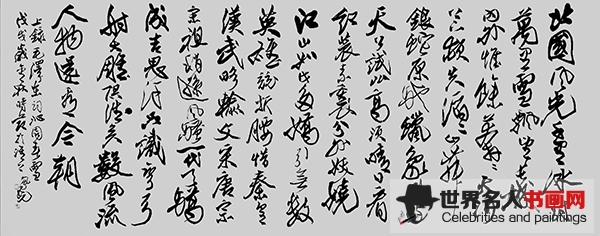 北國风光千里冰
萬里雪飘望长
内外惟馀莽莽大
顿失滔滔山舞
银蛇原驰蠟象
天公试比高须晴日看
红装素裹分外妖娆
江山如此多嬌引無数
英雄競折腰惜秦皇
漢武略输文采唐宗
宋祖稍逊风骚一代天驕
成吉思汗只識弯弓
射大雕俱往矣數风流
人物还看今朝
上録毛泽东词沁园春雪
世界名人书画网
Celebrities and paintings